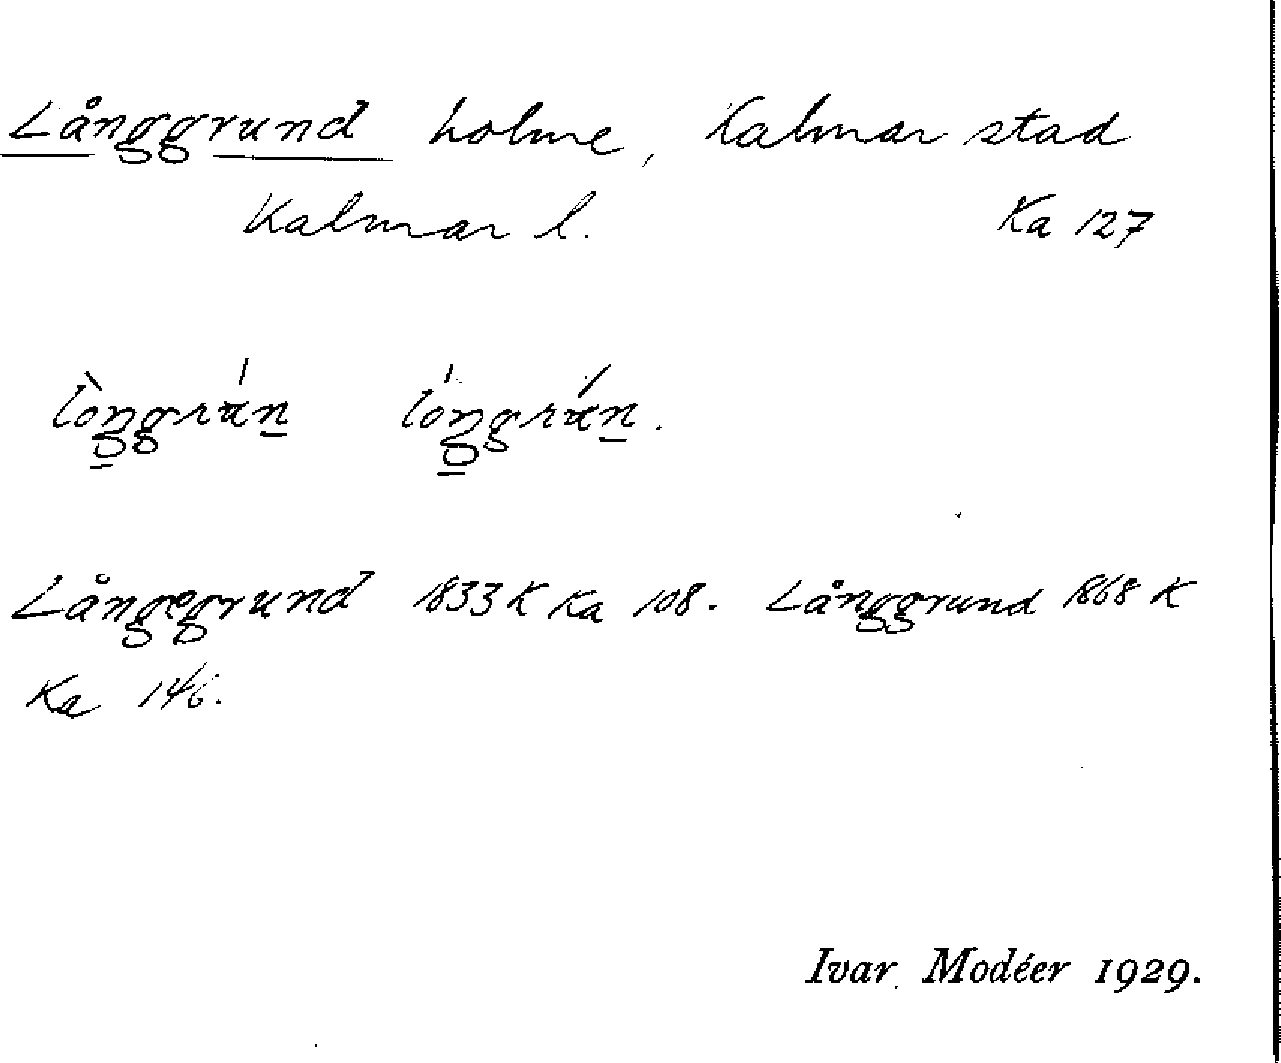 Långgrund holme, Kalmar stad
Kalmar l. Ka 127
Långegrund 1833 K Ka 108. Långgrund 1868 K
Ka 146.
Ivar Modéer 1929.